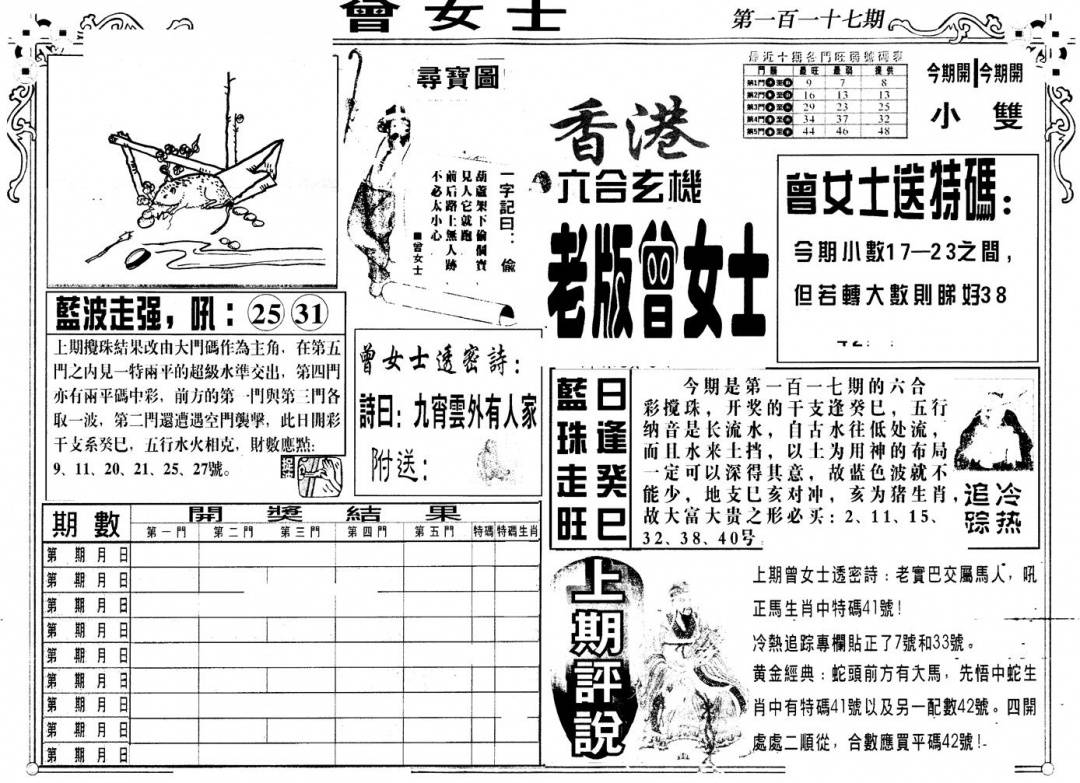 曾女士
第一百一十七期
尋寶圖
一字記曰：偷
葫蘆架下偷個寶
見人它就跑
前后路上無人跡
不必太小心
■曾女士
香港
六合玄機
老版曾女士
最近十期各門旺弱號碼表
門類 最旺 最弱 提供
第1門 9 7 8
第2門 16 13 13
第3門 29 23 25
第4門 34 37 32
第5門 44 46 48
今期開 今期開
小 雙
曾女士送特碼：
今期小數17—23之間，
但若轉大數則睇好38
藍波走强，吼：25 31
上期攪珠結果改由大門碼作為主角，在第五
門之内見一特兩平的超級水準交出，第四門
亦有兩平碼中彩，前方的第一門與第三門各
取一波，第二門還遭遇空門襲擊，此日開彩
干支系癸巳，五行水火相克，財數應點：
9、11、20、21、25、27號。
曾女士透密詩：
詩曰：九宵雲外有人家
附送：
藍珠走旺
日逢癸巳
今期是第一百一七期的六合
彩搅珠，开奖的干支逢癸巳，五行
纳音是长流水，自古水往低处流，
而且水来土挡，以土为用神的布局
一定可以深得其意，故蓝色波就不
能少，地支巳亥对冲，亥为猪生肖，
故大富大贵之形必买：2、11、15、
32、38、40号
追踪
冷热
期數 開獎結果
第一門 第二門 第三門 第四門 第五門 特碼 特碼生肖
第 期 月 日
第 期 月 日
第 期 月 日
第 期 月 日
第 期 月 日
第 期 月 日
第 期 月 日
第 期 月 日
第 期 月 日
上期評說
上期曾女士透密詩：老實巴交屬馬人，吼
正馬生肖中特碼41號！
冷熱追踪專欄貼正了7號和33號。
黄金經典：蛇頭前方有大馬，先悟中蛇生
肖中有特碼41號以及另一配數42號。四開
處處二順從，合數應買平碼42號！